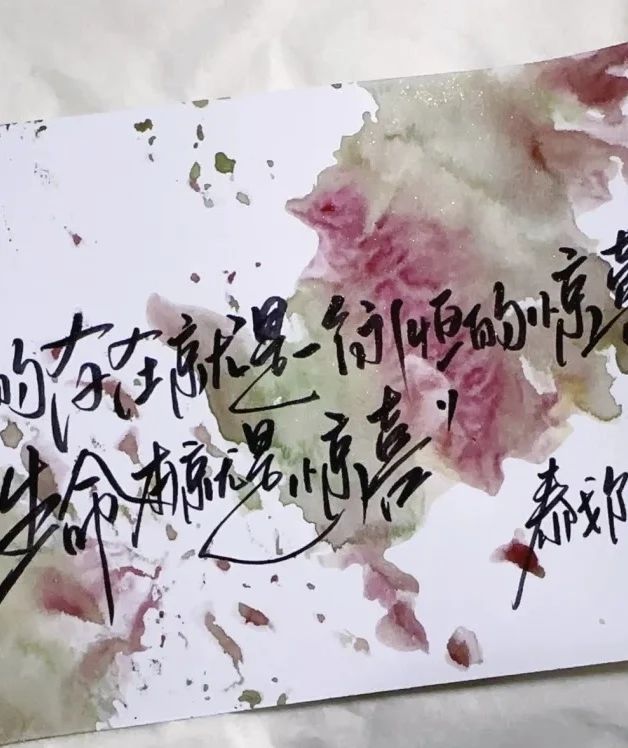 的存在就是一 恒的惊喜
生命本就是惊喜”
泰戈尔